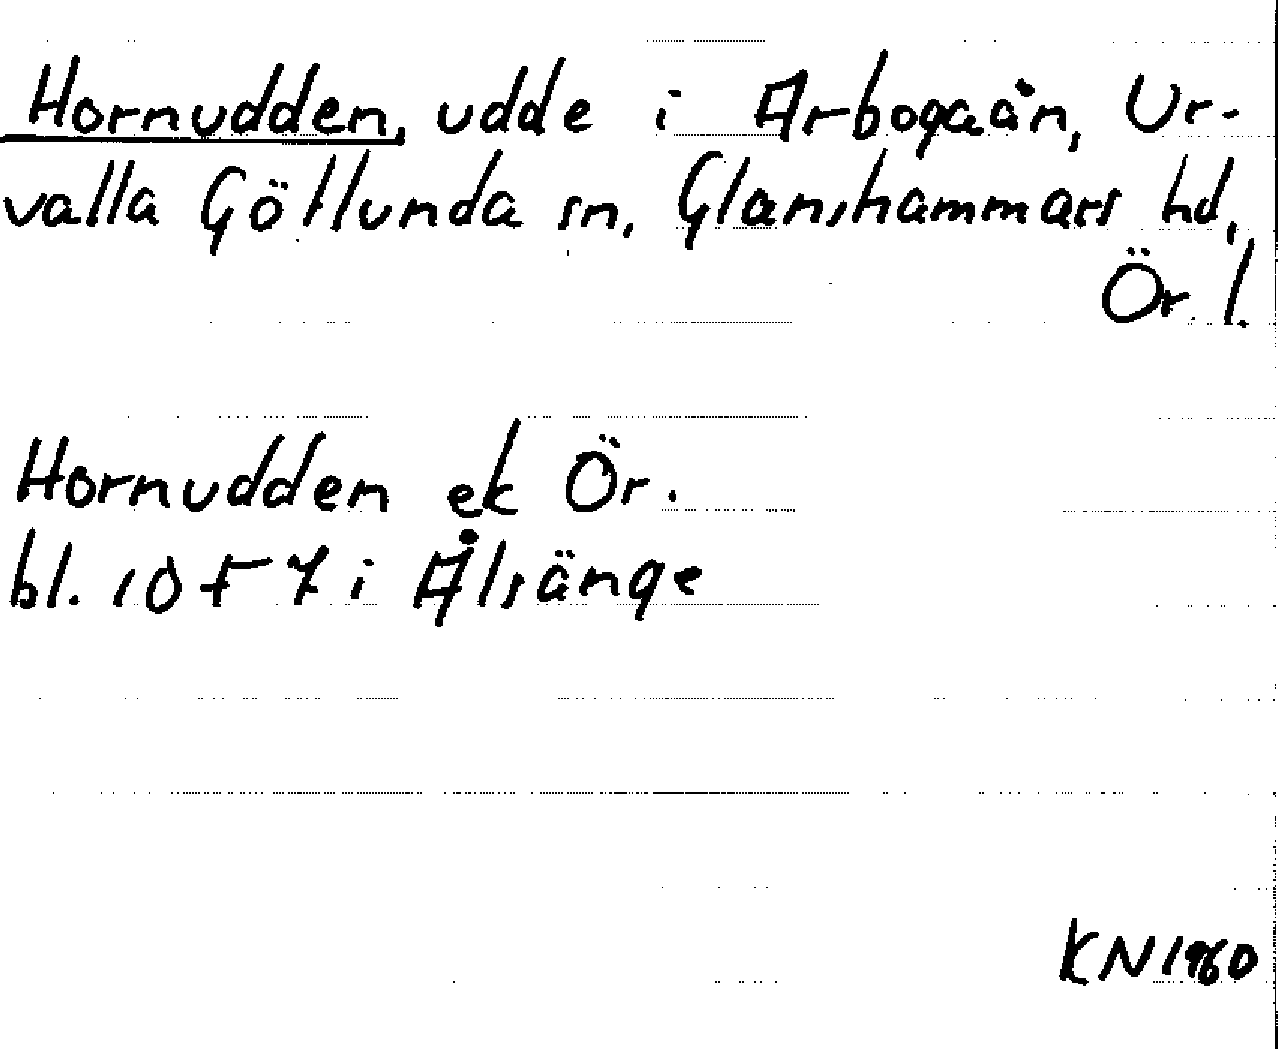 Hornudden, udde i Arbogaån, Ur-
valla Götlunda sn, Glanshammars hd,
Ör. l.
Hornudden ek Ör.
bl. 10 F 7 i Ålsänge
KN 1960